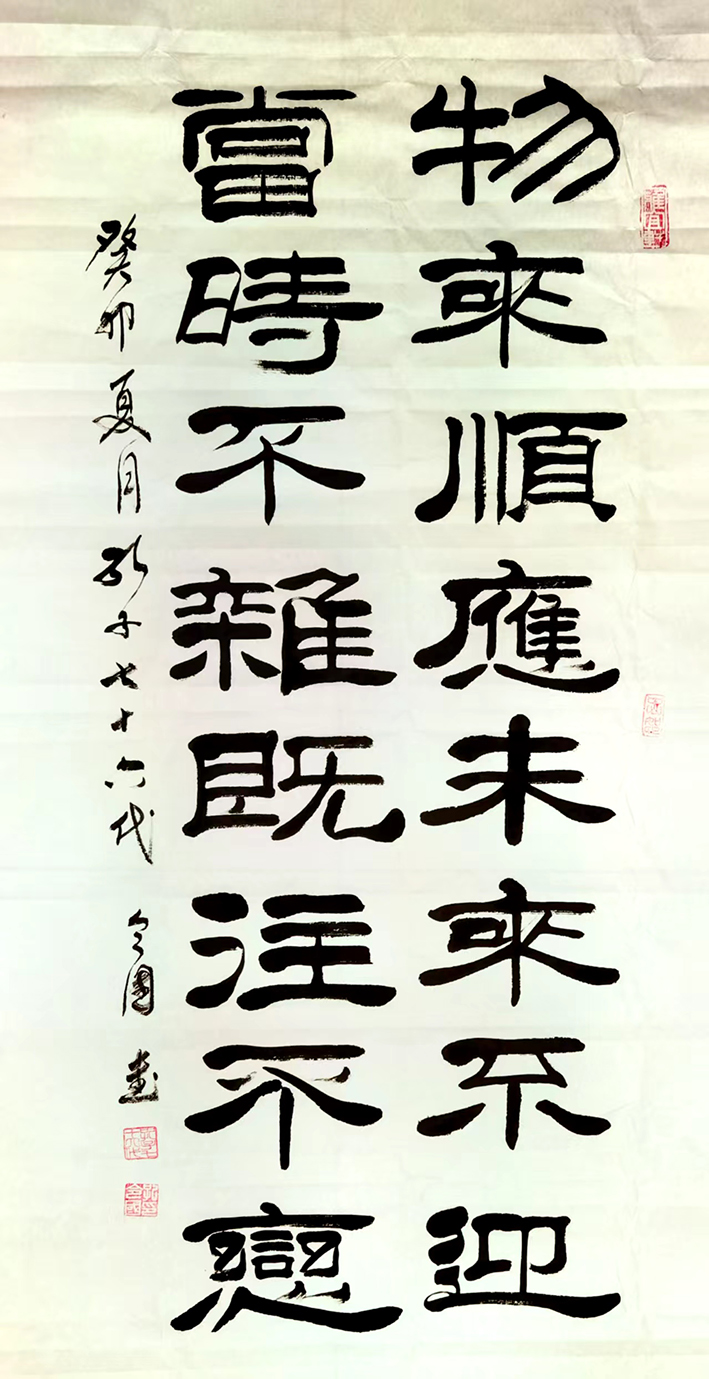 物來順應未來不迎
當時不雜既注不戀
癸卯夏月孔子七十六代令國書